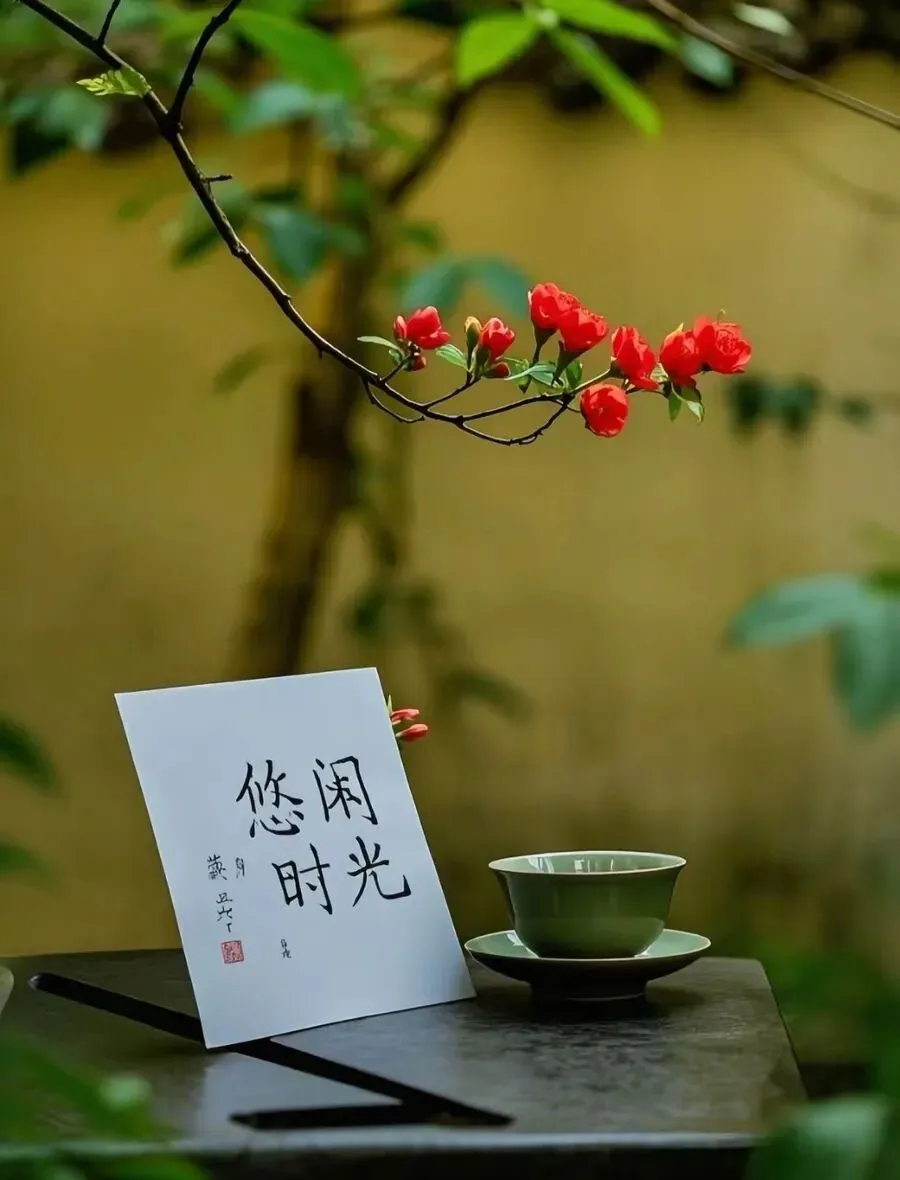 悠闲
时光